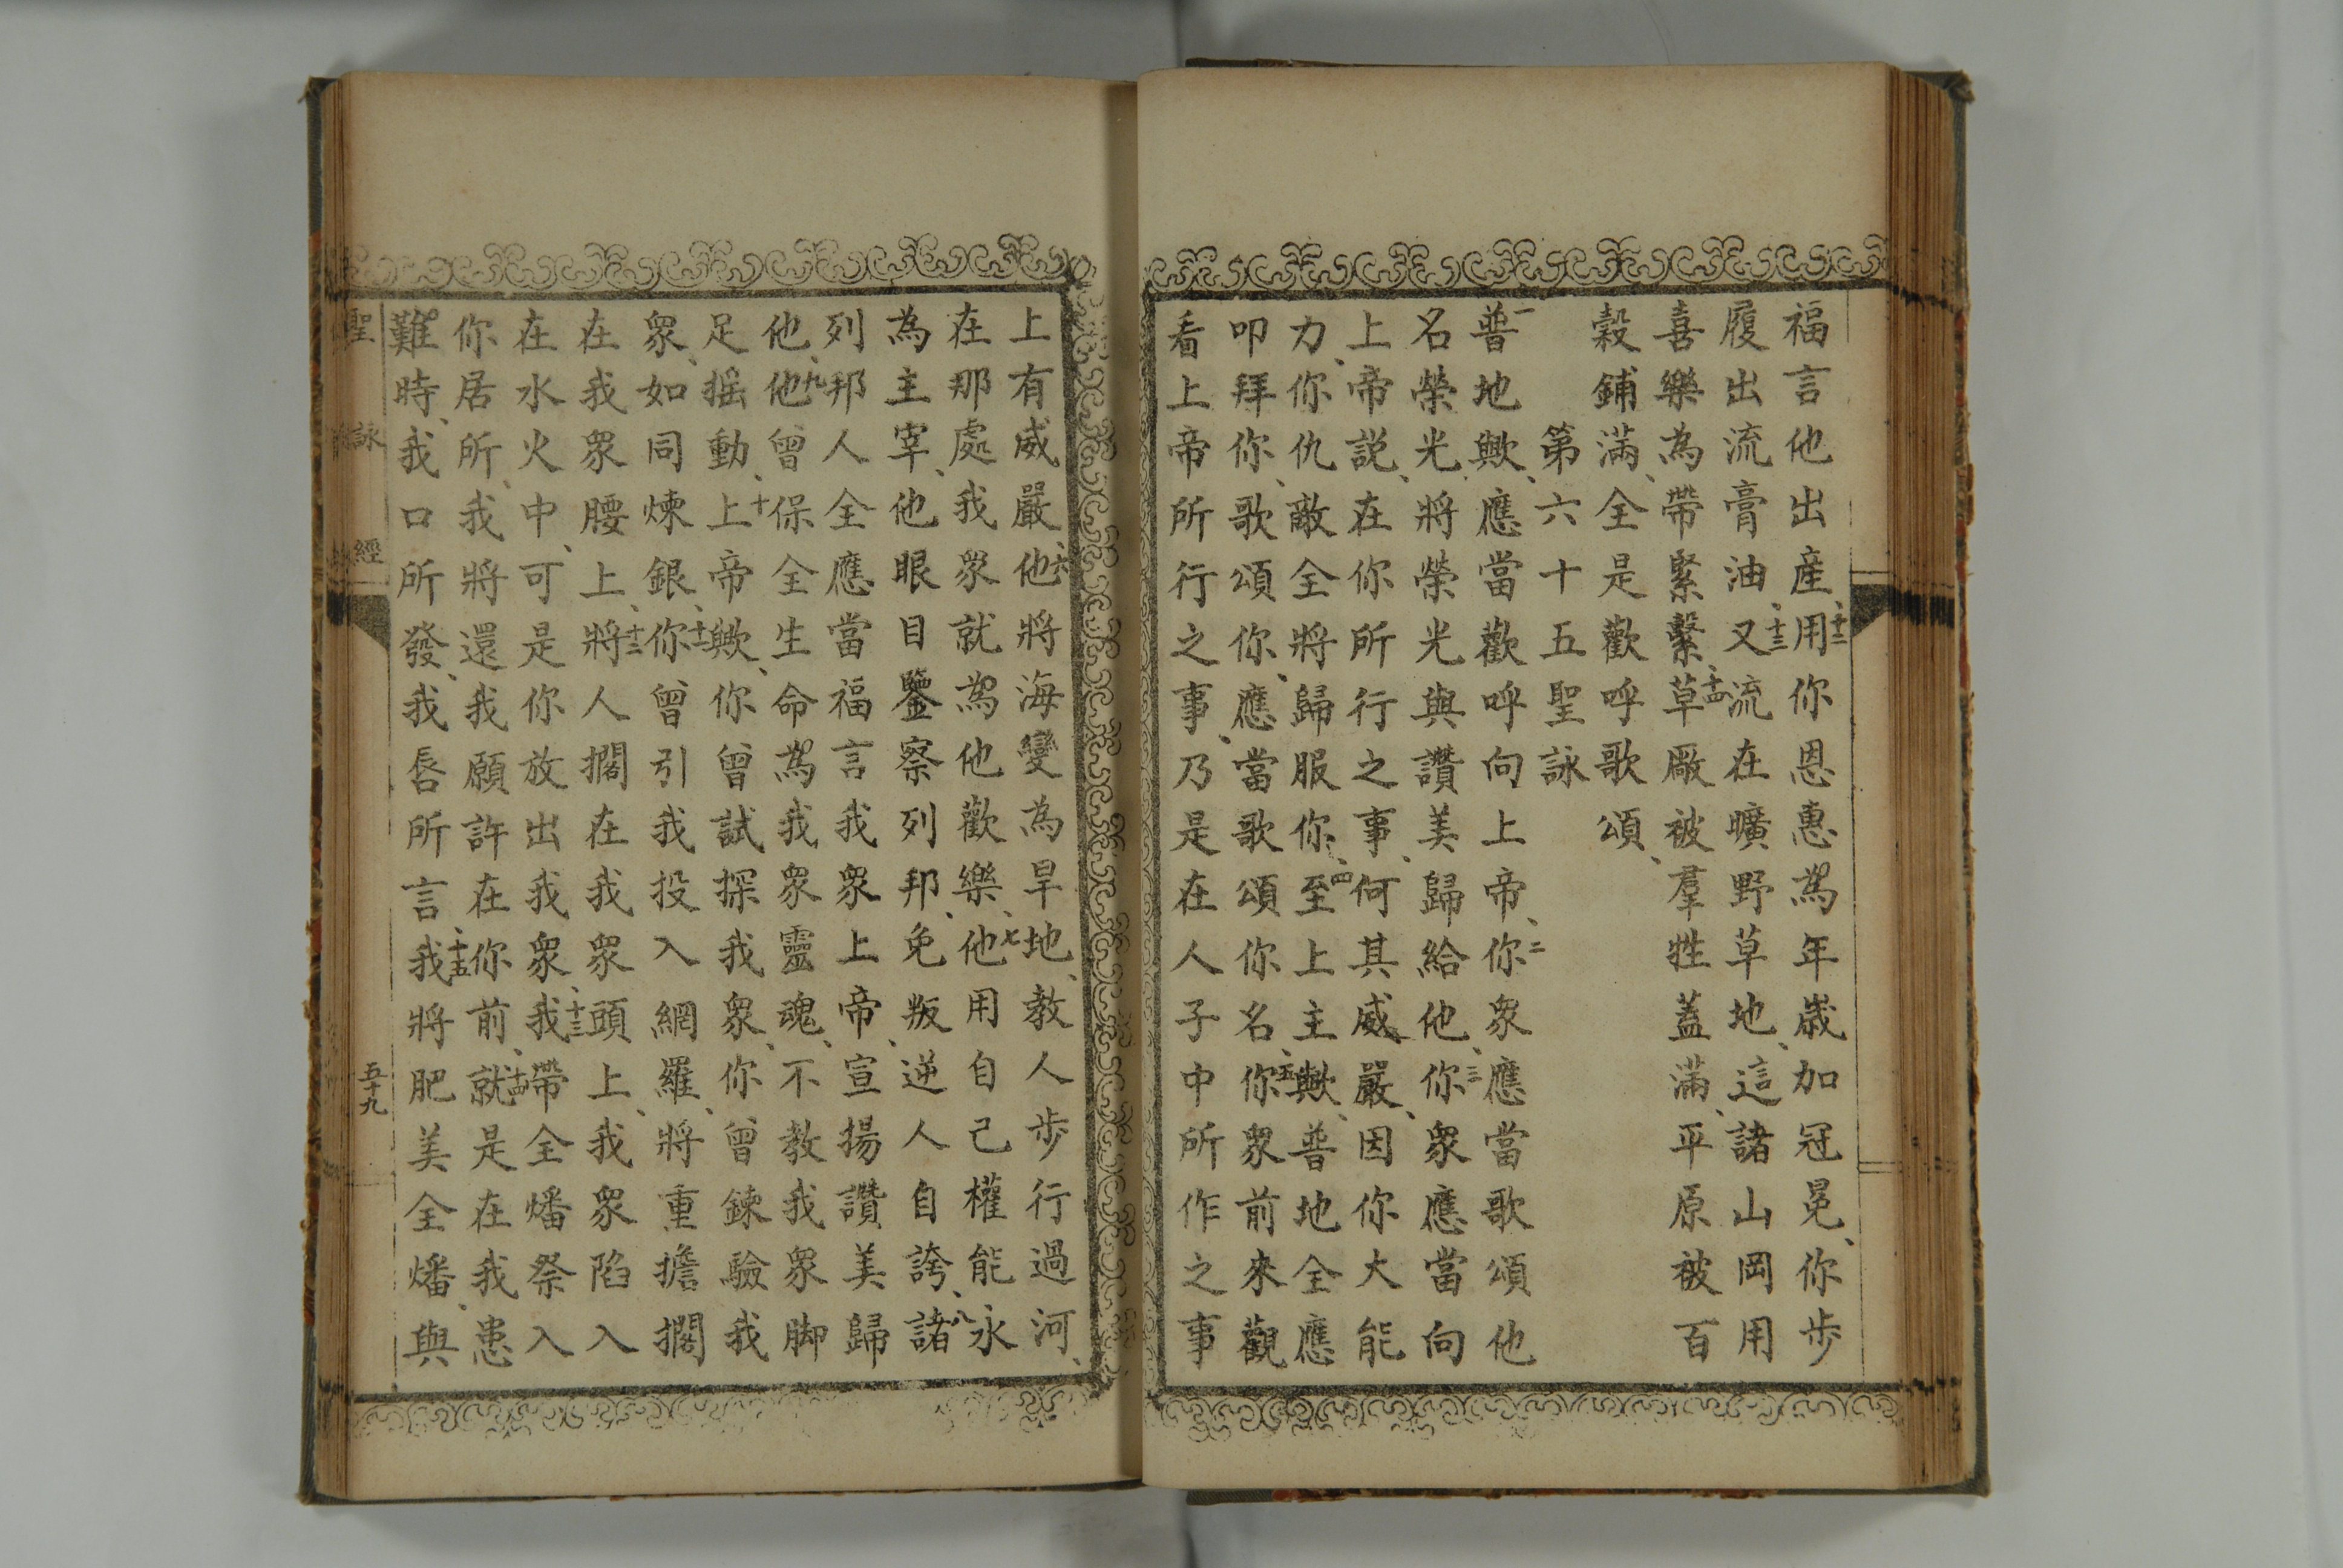 福言他出産、十二用你恩惠為年歲加冠冕、你步
履出流膏油、十三又流在曠野草地、這諸山岡用
喜樂為帶緊繫、十四草厰被羣牲蓋滿、平原被百
穀鋪滿、全是歡呼歌頌、
第六十五聖詠
一普地歟、應當歡呼向上帝、二你衆應當歌頌他
名榮光將榮光與讚美歸給他、三你衆應當向
上帝説、在你所行之事、何其威嚴、因你大能
力、你仇敵全將歸服你、四至上主歟、普地全應
叩拜你、歌頌你、應當歌頌你名、五你衆前來觀
看上帝所行之事、乃是在人子中所作之事
上有威嚴、六他將海變為旱地、教人步行過河、
在那處我衆就為他歡樂、七他用自己權能永
為主宰、他眼目鑒察列邦、免叛逆人自誇、八諸
列邦人全應當福言我衆上帝、宣揚讚美歸
他、九他曾保全生命為我衆靈魂、不教我衆脚
足摇動、十上帝歟、你曾試探我衆、你曾鍊驗我
衆、如同煉銀、十一你曾引我投入網羅、將重擔擱
在我衆腰上、十二將人擱在我衆頭上、我衆陷入
在水火中、可是你放出我衆、十三我帶全燔祭入
你居所、我將還我願許在你前、十四就是在我患
難時、我口所發、我唇所言、十五我將肥美全燔、與
聖詠經
五十九